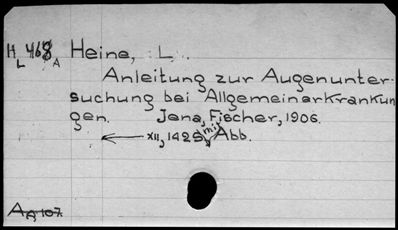 H L 468 A Heine, L.
Anleitung zur Augenunter-
suchung bei Allgemeinerkrankun
gen. Jena, Fischer, 1906.
XII, 142S. mit Abb.
A A, 107.